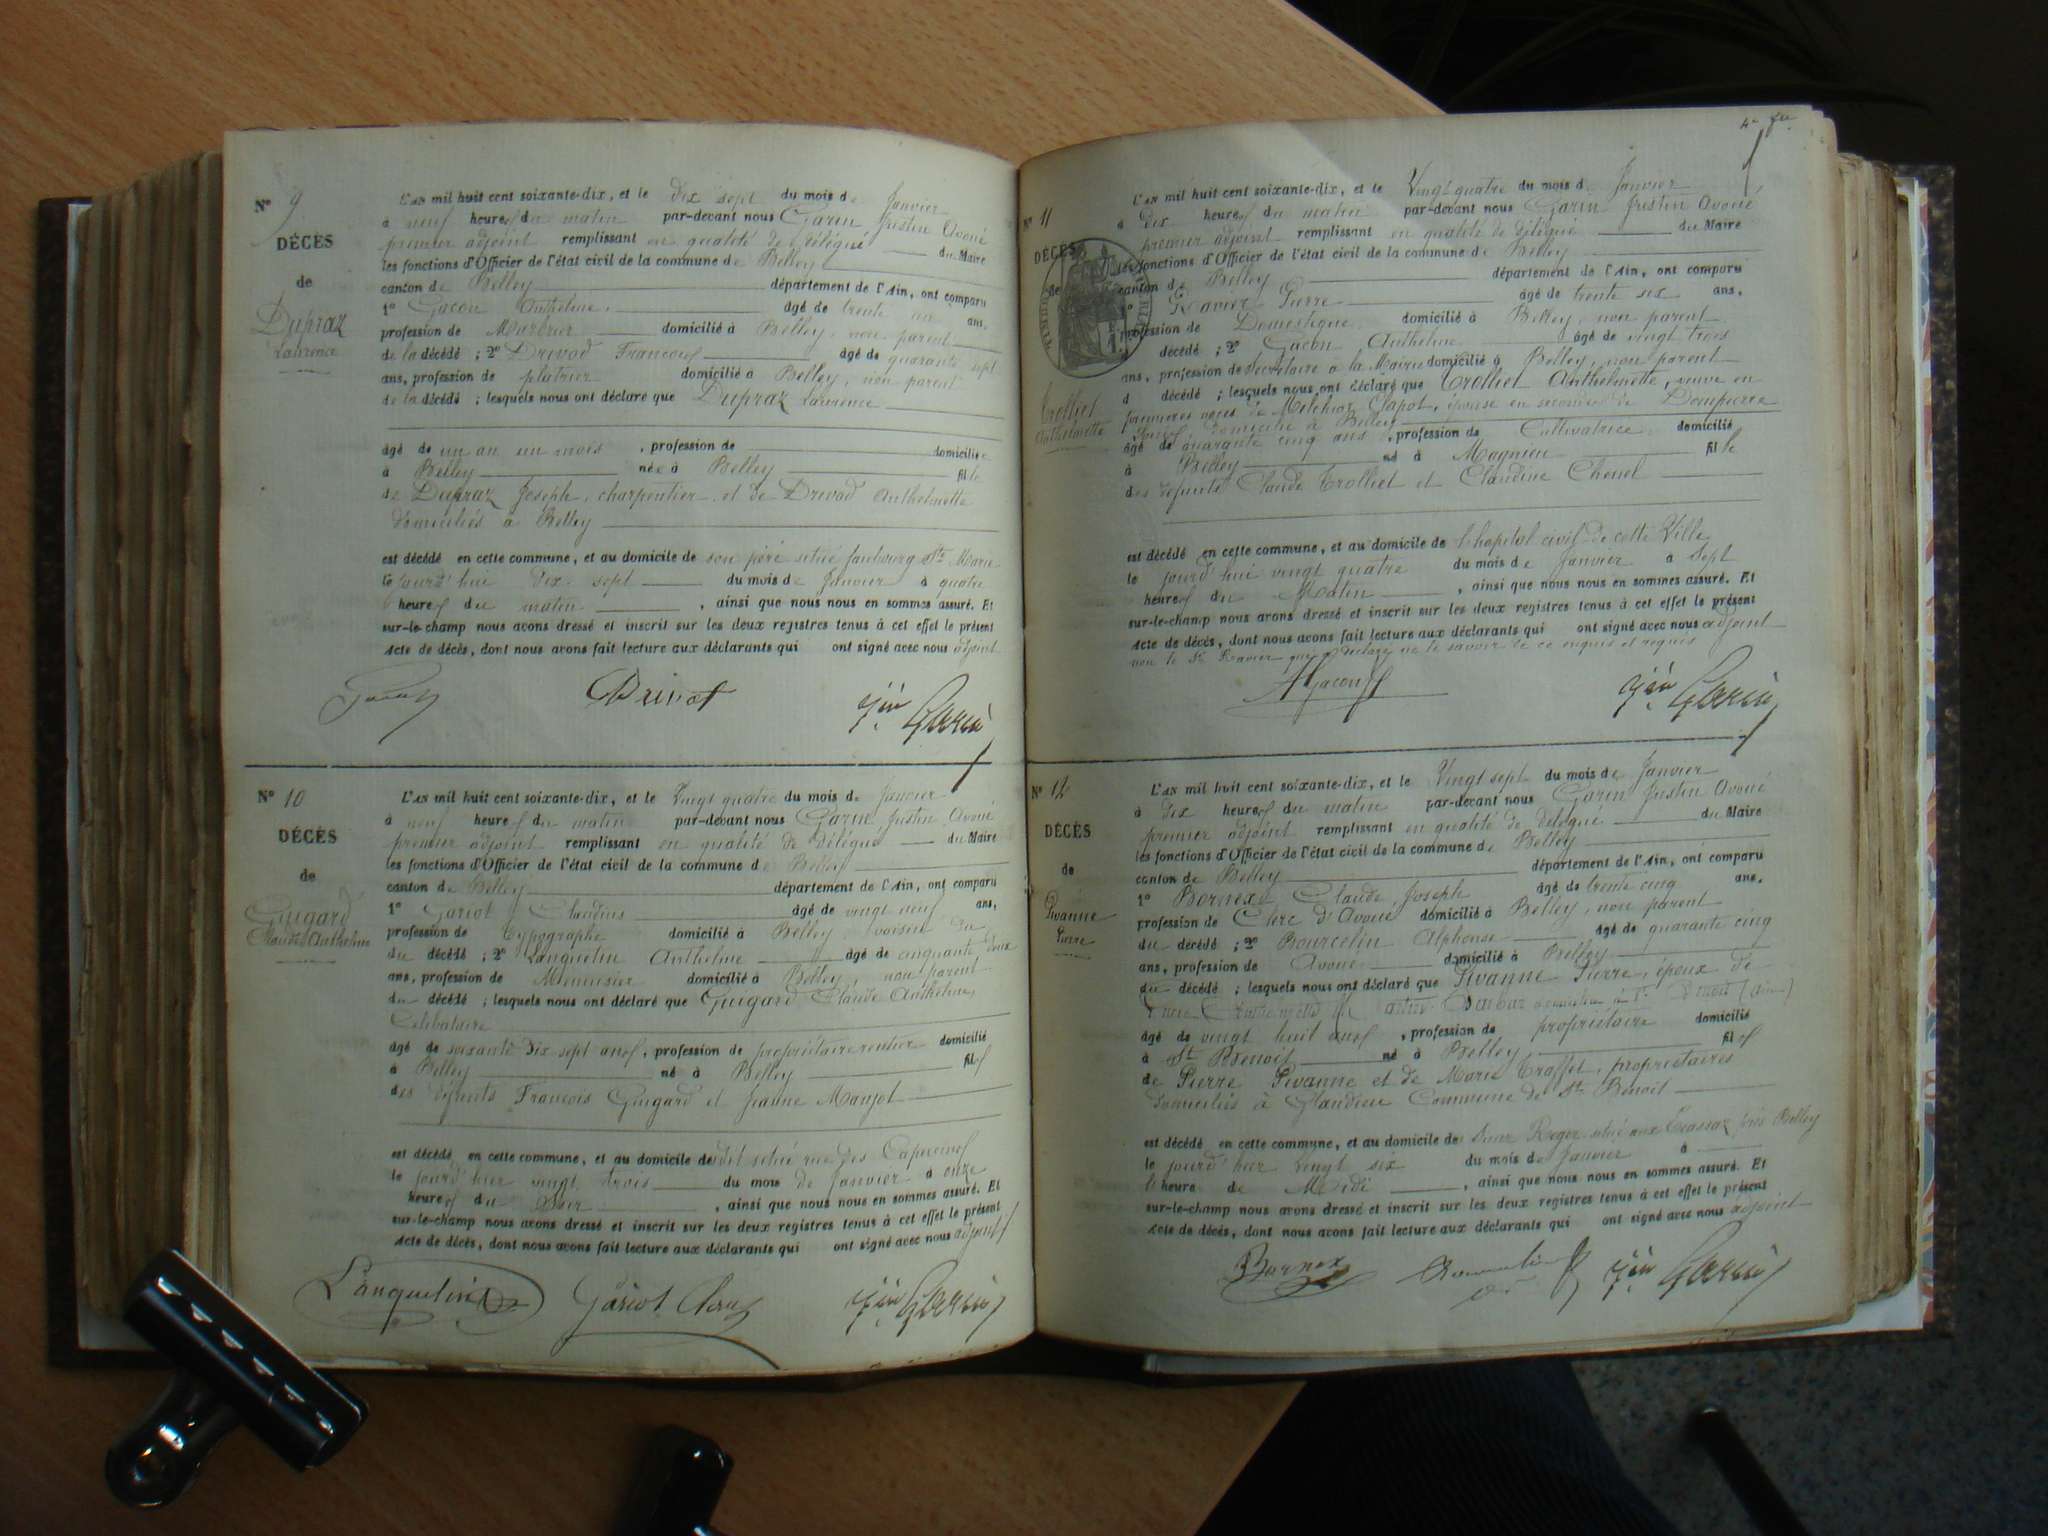 N° 9
DÉCÈS
de
Dupraz
Laurence
L'AN mil huit cent soixante-dix, et le dix sept du mois de Janvier
à neuf heures du matin par-devant nous Garin Justin Avoué
premier adjoint remplissant en qualité de délégué du Maire
les fonctions d'Officier de l'état civil de la commune de Belley
canton de Belley département de l'Ain, ont comparu
1° Gacon Anthelme âgé de trente ans,
profession de domicilié à Belley, non parent
de la décédé ; 2° Drivod François âgé de quarante sept
ans, profession de platrier domicilié à Belley, non parent
de la décédé ; lesquels nous ont déclaré que Dupraz Laurence
âgé de un an un mois, profession de domiciliée
à Belley née à Belley fille
de Dupraz Joseph, charpentier, et de Drivod Anthelmette
domiciliés à Belley
est décédé en cette commune, et au domicile de son père situé faubourg Ste Marie
le jourd'hui dix sept du mois de Janvier à quatre
heures du matin, ainsi que nous nous en sommes assuré. Et
sur-le-champ nous avons dressé et inscrit sur les deux registres tenus à cet effet le présent
acte de décès, dont nous avons fait lecture aux déclarants qui ont signé avec nous adjoint
Drivot Jin Garin
N° 10
DÉCÈS
de
Guigard
Claude Anthelme
L'AN mil huit cent soixante-dix, et le Vingt quatre du mois de Janvier
à neuf heures du matin par-devant nous Garin Justin Avoué
premier adjoint remplissant en qualité de délégué du Maire
les fonctions d'Officier de l'état civil de la commune de Belley
canton de Belley département de l'Ain, ont comparu
1° Gariot Claudius âgé de vingt neuf ans,
profession de typographe domicilié à Belley voisin du
du décédé ; 2° Lanquetin Anthelme âgé de cinquante deux
ans, profession de Menuisier domicilié à Belley, non parent
du décédé ; lesquels nous ont déclaré que Guigard Claude Anthelme,
Célibataire
âgé de soixante dix sept ans, profession de propriétaire rentier domicilié
à Belley né à Belley fils
des défunts François Guigard et Jeanne Manjot
est décédé en cette commune, et au domicile dudit situé rue des Capucins
le jourd'hier vingt trois du mois de Janvier à onze
heures du soir, ainsi que nous nous en sommes assuré. Et
sur-le-champ nous avons dressé et inscrit sur les deux registres tenus à cet effet le présent
acte de décès, dont nous avons fait lecture aux déclarants qui ont signé avec nous adjoint
Lanquetin Gariot Jin Garin
N° 11
DÉCÈS
de
Trolliet
Anthelmette
L'AN mil huit cent soixante-dix, et le Vingt quatre du mois de Janvier
à dix heures du matin par-devant nous Garin Justin Avoué
premier adjoint remplissant en qualité de délégué du Maire
les fonctions d'Officier de l'état civil de la commune de Belley
canton de Belley département de l'Ain, ont comparu
1° Ravier Pierre âgé de trente six ans,
profession de Domestique domicilié à Belley, non parent
décédé ; 2° Gacon Anthelme âgé de vingt trois
ans, profession de Secrétaire à la Mairie domicilié à Belley, non parent
d décédé ; lesquels nous ont déclaré que Trolliet Anthelmette, veuve en
premières noces de Melchior Clapot, épouse en secondes de Dompierre
domicilié à Belley
âgé de quarante cinq ans, profession de Cultivatrice domicilié
à Belley né à Magnieu fille
des défunts Claude Trolliet et Claudine Chenel
est décédé en cette commune, et au domicile de l'hopital civil de cette Ville
le jourd'hui vingt quatre du mois de Janvier à Sept
heures du Matin, ainsi que nous nous en sommes assuré. Et
sur-le-champ nous avons dressé et inscrit sur les deux registres tenus à cet effet le présent
acte de décès, dont nous avons fait lecture aux déclarants qui ont signé avec nous adjoint
non le Sr Ravier qui a déclaré ne le savoir de ce enquis et requis
AGacon Jin Garin
N° 12
DÉCÈS
de
Pivanne
Pierre
L'AN mil huit cent soixante-dix, et le Vingt sept du mois de Janvier
à dix heures du matin par-devant nous Garin Justin Avoué
premier adjoint remplissant en qualité de délégué du Maire
les fonctions d'Officier de l'état civil de la commune de Belley
canton de Belley département de l'Ain, ont comparu
1° Bornex Claude Joseph âgé de trente cinq ans,
profession de Clerc d'Avoué domicilié à Belley, non parent
du décédé ; 2° Bourcelin Alphonse âgé de quarante cinq
ans, profession de Avoué domicilié à Belley
du décédé ; lesquels nous ont déclaré que Pivanne Pierre, époux de
âgé de vingt huit ans, profession de propriétaire domicilié
à St Benoit né à Belley fils
de Pierre Pivanne et de Marie Traffet, propriétaires
domiciliés à Glandieu Commune de St Benoit
est décédé en cette commune, et au domicile de Sieur Roger situé aux Ecassaz près Belley
le jourd'hier vingt six du mois de Janvier à
heure de Midi, ainsi que nous nous en sommes assuré. Et
sur-le-champ nous avons dressé et inscrit sur les deux registres tenus à cet effet le présent
acte de décès, dont nous avons fait lecture aux déclarants qui ont signé avec nous adjoint
Bornex Jin Garin